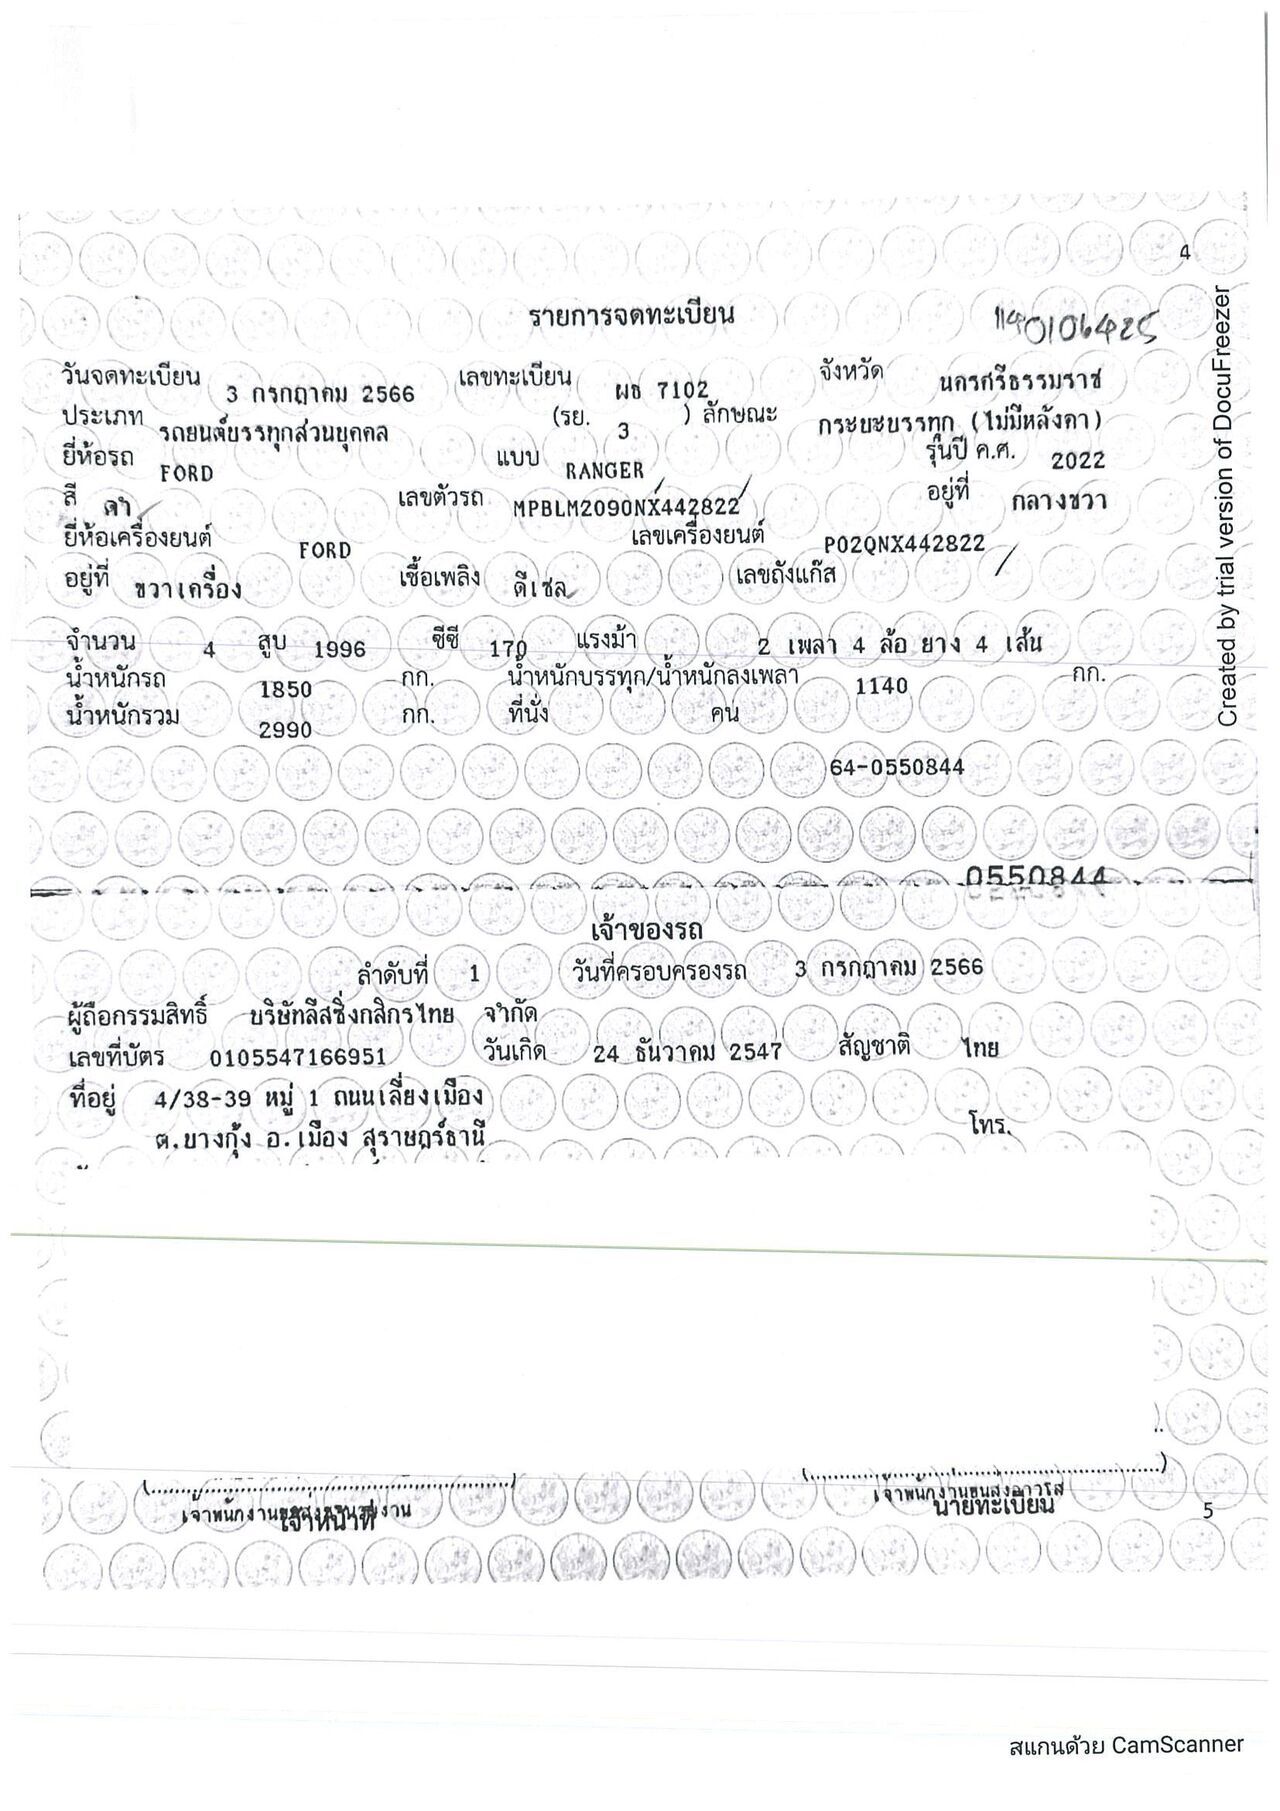 4
รายการจดทะเบียน
วันจดทะเบียน 3 กรกฎาคม 2566 เลขทะเบียน ผธ 7102 จังหวัด นครศรีธรรมราช
ประเภท รถยนต์บรรทุกส่วนบุคคล (รย. 3 ) ลักษณะ กระบะบรรทุก (ไม่มีหลังคา)
ยี่ห้อรถ FORD แบบ RANGER รุ่นปี ค.ศ. 2022
สี ดำ เลขตัวรถ MPBLM2090NX442822 อยู่ที่ กลางขวา
ยี่ห้อเครื่องยนต์ FORD เลขเครื่องยนต์ P02QNX442822
อยู่ที่ ขวาเครื่อง เชื้อเพลิง ดีเซล เลขถังแก๊ส
จำนวน 4 สูบ 1996 ซีซี 170 แรงม้า 2 เพลา 4 ล้อ ยาง 4 เส้น
น้ำหนักรถ 1850 กก. น้ำหนักบรรทุก/น้ำหนักลงเพลา 1140 กก.
น้ำหนักรวม 2990 กก. ที่นั่ง คน
64-0550844
0550844
เจ้าของรถ
ลำดับที่ 1 วันที่ครอบครองรถ 3 กรกฎาคม 2566
ผู้ถือกรรมสิทธิ์ บริษัทลีสซิ่งกสิกรไทย จำกัด
เลขที่บัตร 0105547166951 วันเกิด 24 ธันวาคม 2547 สัญชาติ ไทย
ที่อยู่ 4/38-39 หมู่ 1 ถนนเลี่ยงเมือง
ต.บางกุ้ง อ.เมือง สุราษฎร์ธานี โทร.
เจ้าหน้าที่ นายทะเบียน
5
Created by trial version of DocuFreezer
สแกนด้วย CamScanner